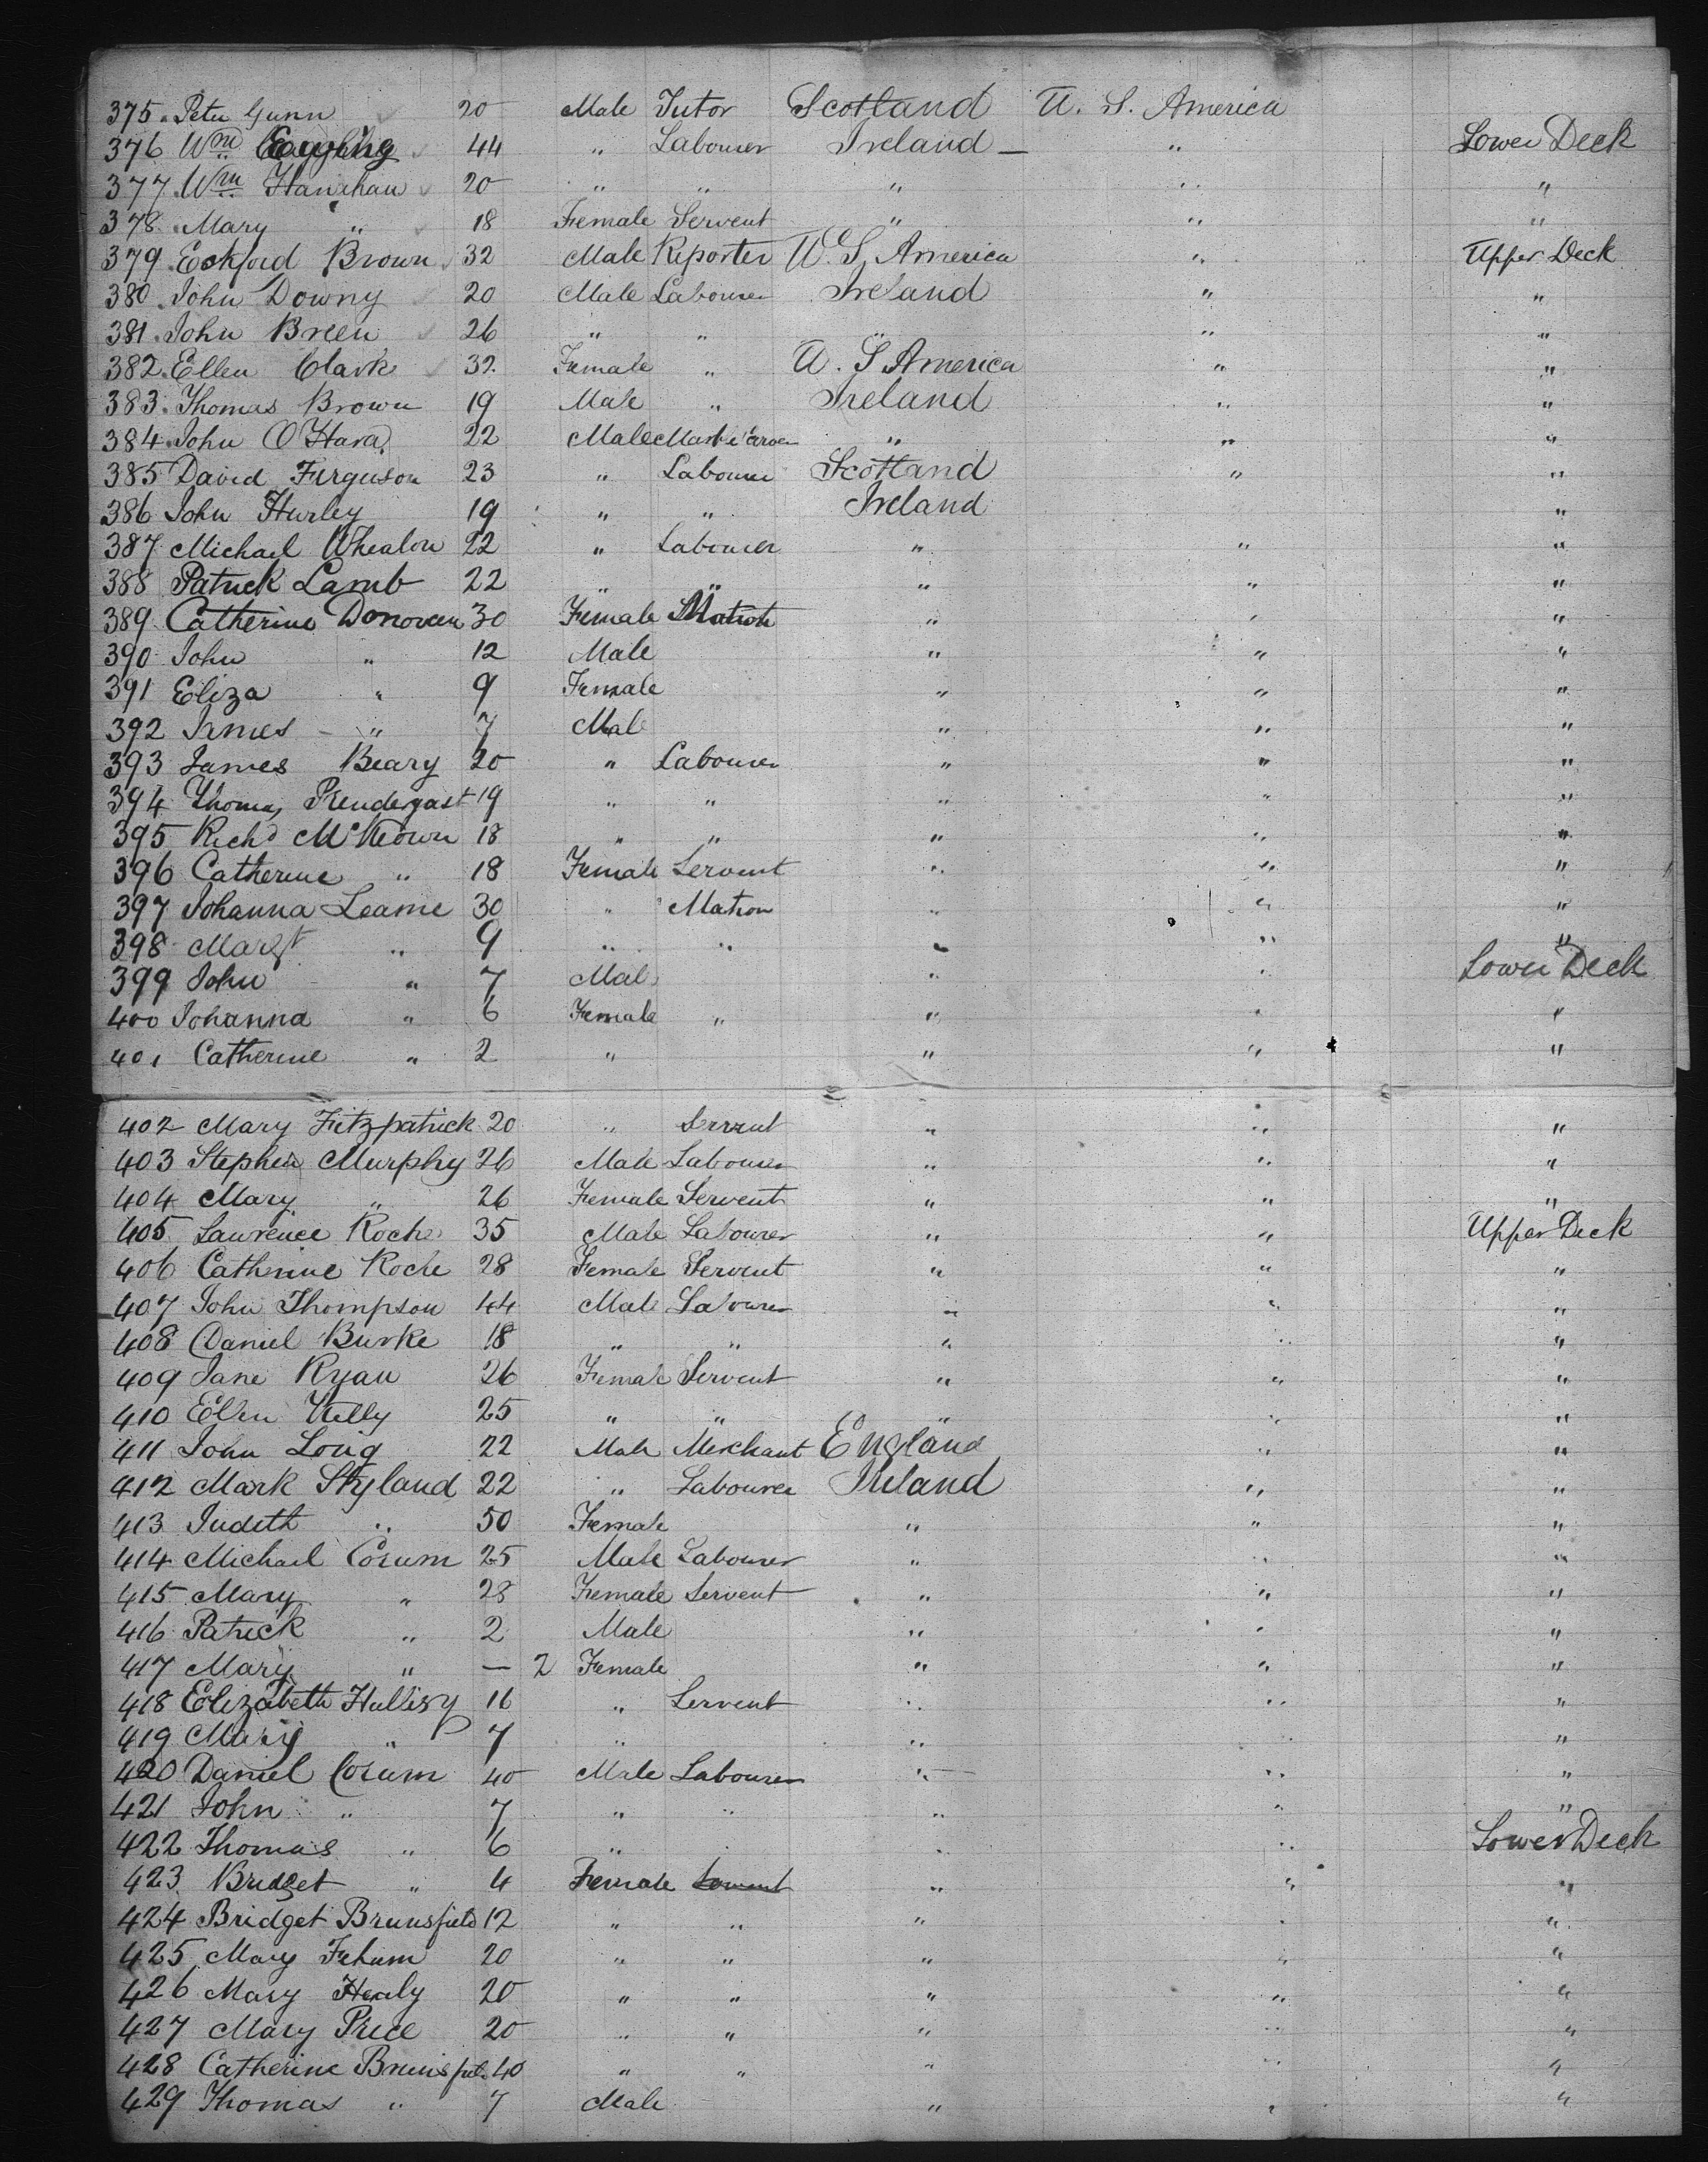 375 Peter Gunn 20 Male Tutor Scotland U. S. America
376 Wm 44 " Labourer Ireland — " Lower Deck
377 Wm Hanrahan 20 " " " " "
378 Mary " 18 Female Servent " " "
379 Eckford Brown 32 Male Reporter U. S. America " Upper Deck
380 John Downy 20 Male Labourer Ireland " "
381 John Breen 26 " " " " "
382 Ellen Clark 32 Female " U. S America " "
383 Thomas Brown 19 Male " Ireland " "
384 John O'Hara 22 Male " " "
385 David Ferguson 23 " Labourer Scotland " "
386 John Hurley 19 " " Ireland "
387 Michael Whealon 22 " Labourer " " "
388 Patrick Lamb 22 " " " " "
389 Catherine Donovan 30 Female Matron " " "
390 John " 12 Male " " "
391 Eliza " 9 Female " " "
392 James " 7 Male " " "
393 James Beary 20 " Labourer " " "
394 Thomas Prendergast 19 " " " " "
395 Richd McKeown 18 " " " " "
396 Catherine " 18 Female Servent " " "
397 Johanna Leame 30 " Matron " " "
398 Margt " 9 " " " " "
399 John " 7 Male " " Lower Deck
400 Johanna " 6 Female " " " "
401 Catherine " 2 " " " "
402 Mary Fitzpatrick 20 " Servent " " "
403 Stephen Murphy 26 Male Labourer " " "
404 Mary " 26 Female Servent " " "
405 Lawrence Roche 35 Male Labourer " " Upper Deck
406 Catherine Roche 28 Female Servent " " "
407 John Thompson 44 Male Labourer " " "
408 Daniel Burke 18 " " " " "
409 Jane Ryan 26 Female Servent " " "
410 Ellen Kelly 25 " " " " "
411 John Long 22 Male Merchant England " "
412 Mark Skyland 22 " Labourer Ireland " "
413 Judeth " 50 Female " " "
414 Michael Corum 25 Male Labourer " " "
415 Mary " 28 Female Servent " " "
416 Patrick " 2 Male " " "
417 Mary " — 2 Female " " "
418 Elizabeth Hallisy 16 " Servent " " "
419 Mary " 7 " " " "
420 Daniel Corum 40 Male Labourer " " "
421 John " 7 " " " " "
422 Thomas " 6 " " " Lower Deck
423 Bridget " 4 Female Servent " " "
424 Bridget Brunsfield 12 " " " " "
425 Mary Fehum 20 " " " " "
426 Mary Healy 20 " " " " "
427 Mary Price 20 " " " " "
428 Catherine 40 " " " " "
429 Thomas " 7 Male " " "